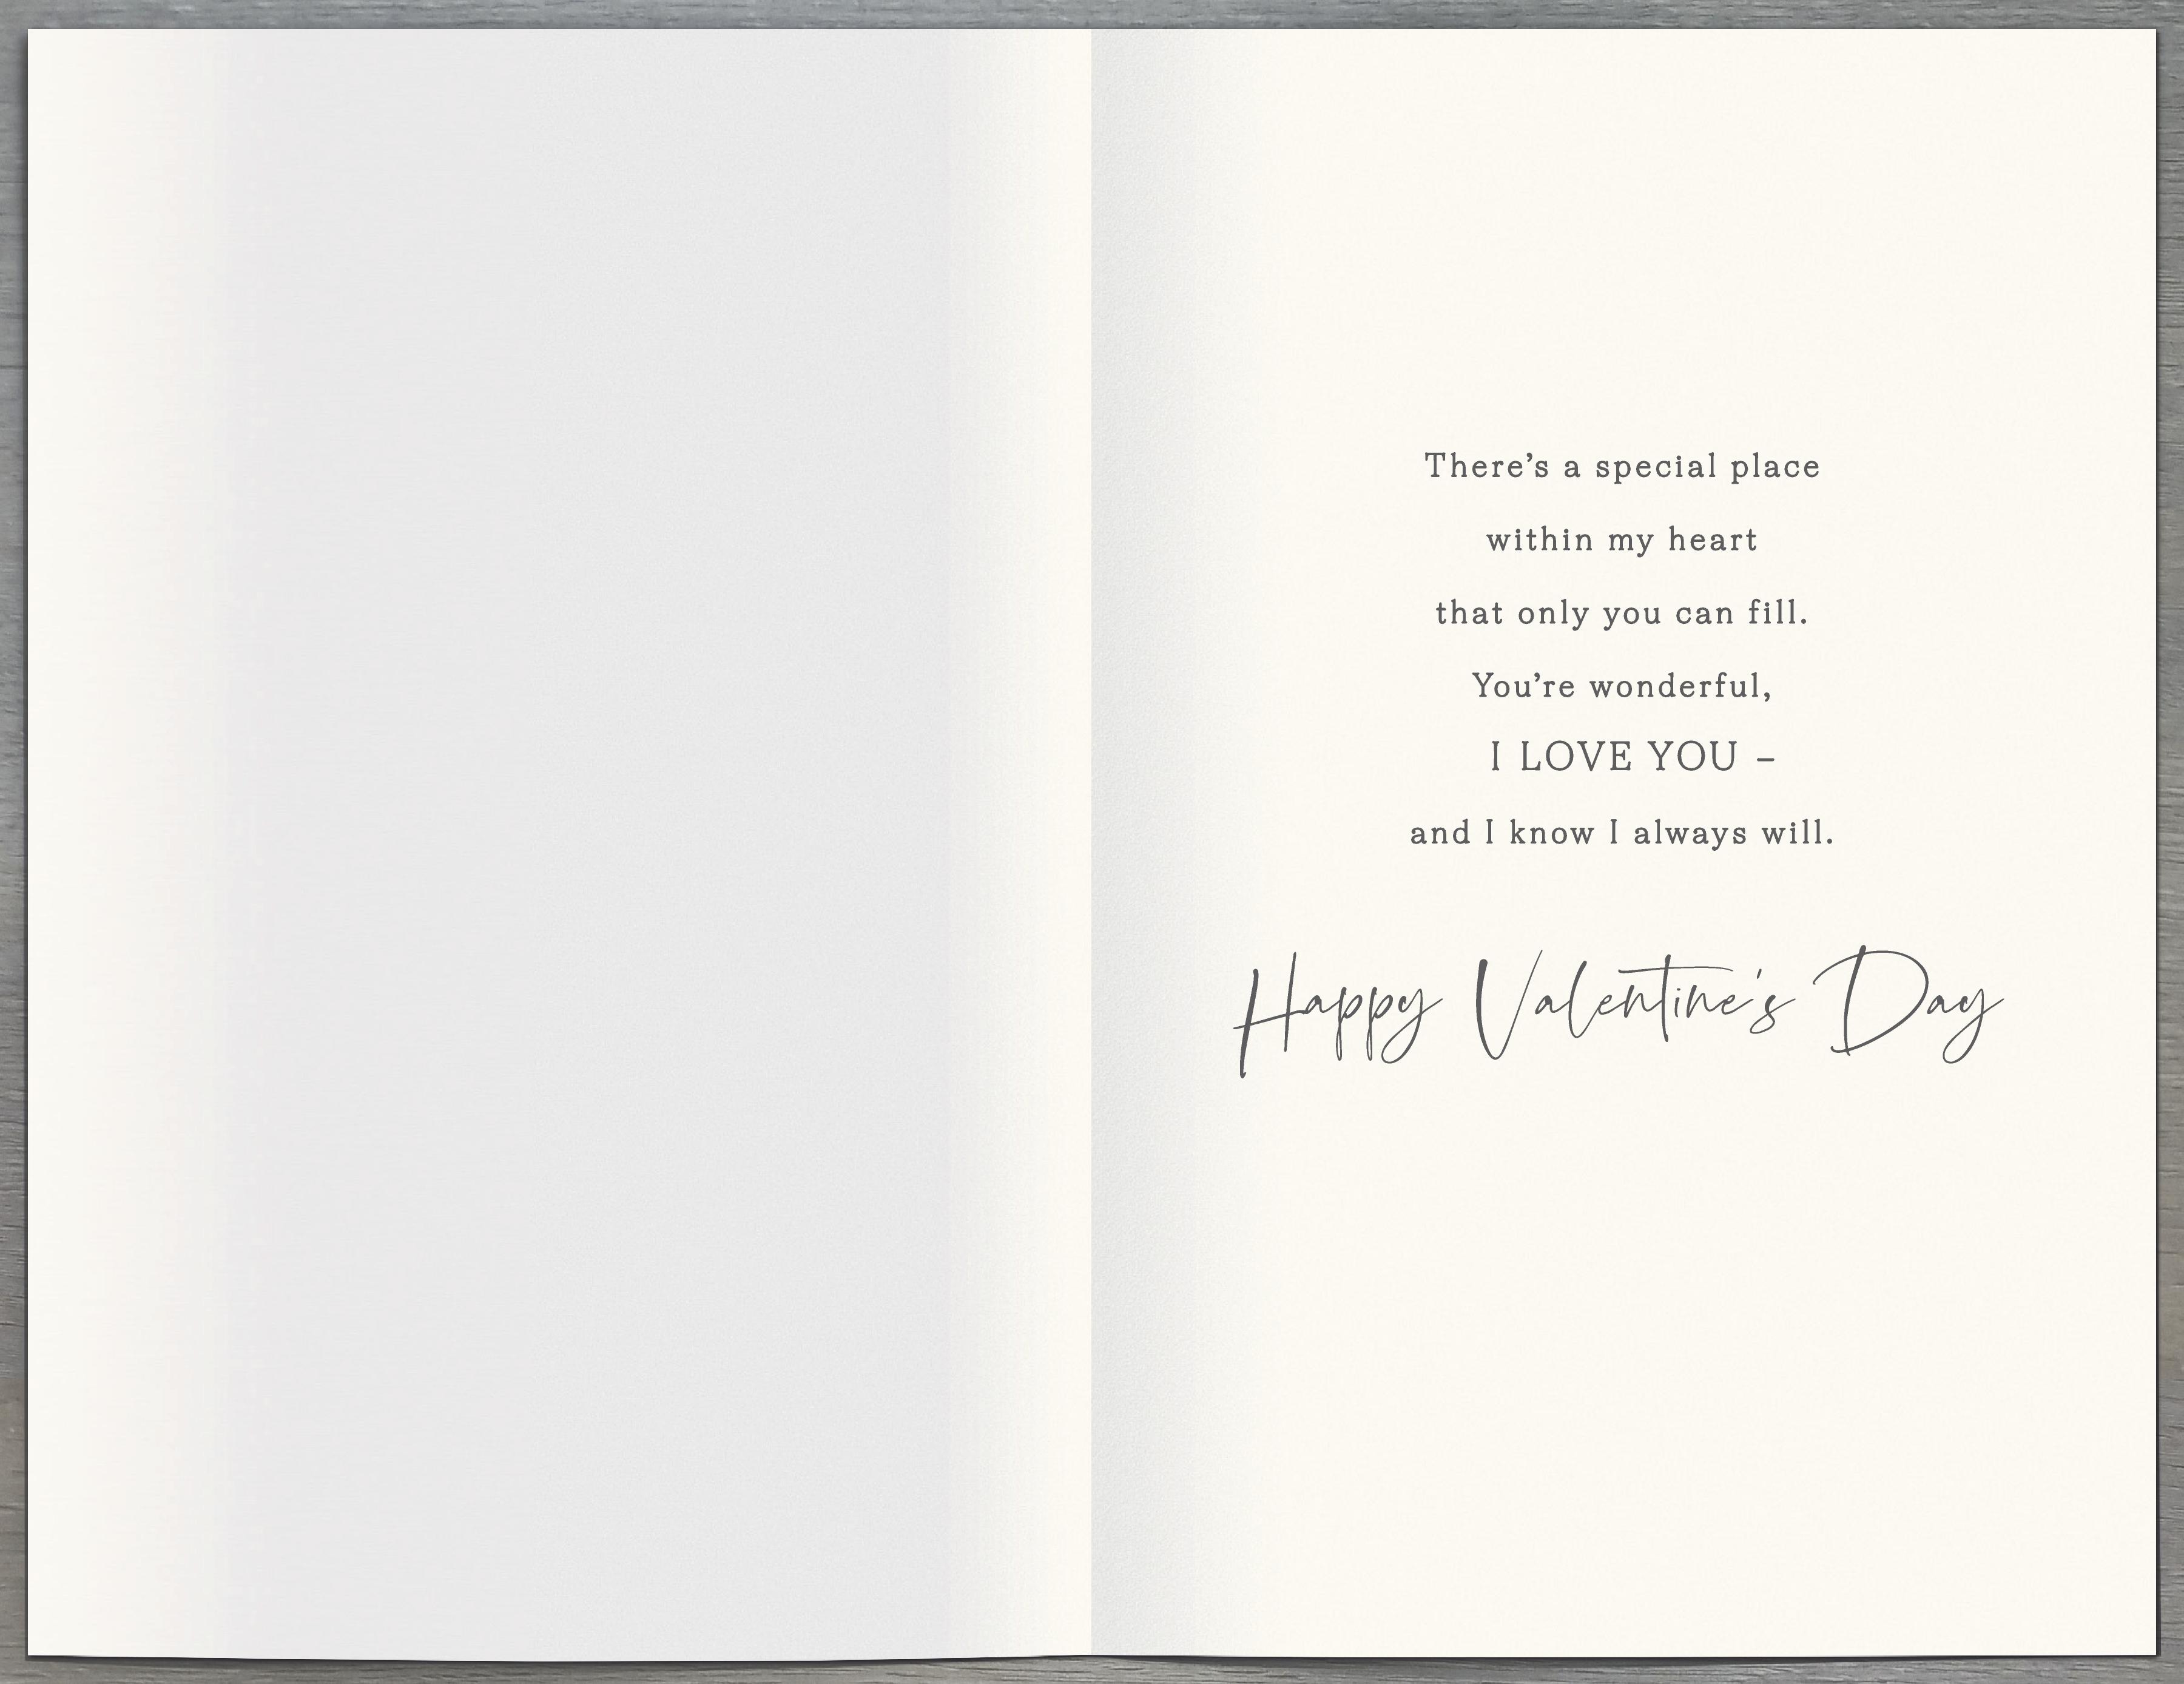 There’s a special place
within my heart
that only you can fill.
You’re wonderful,
I LOVE YOU –
and I know I always will.
Happy Valentine's Day